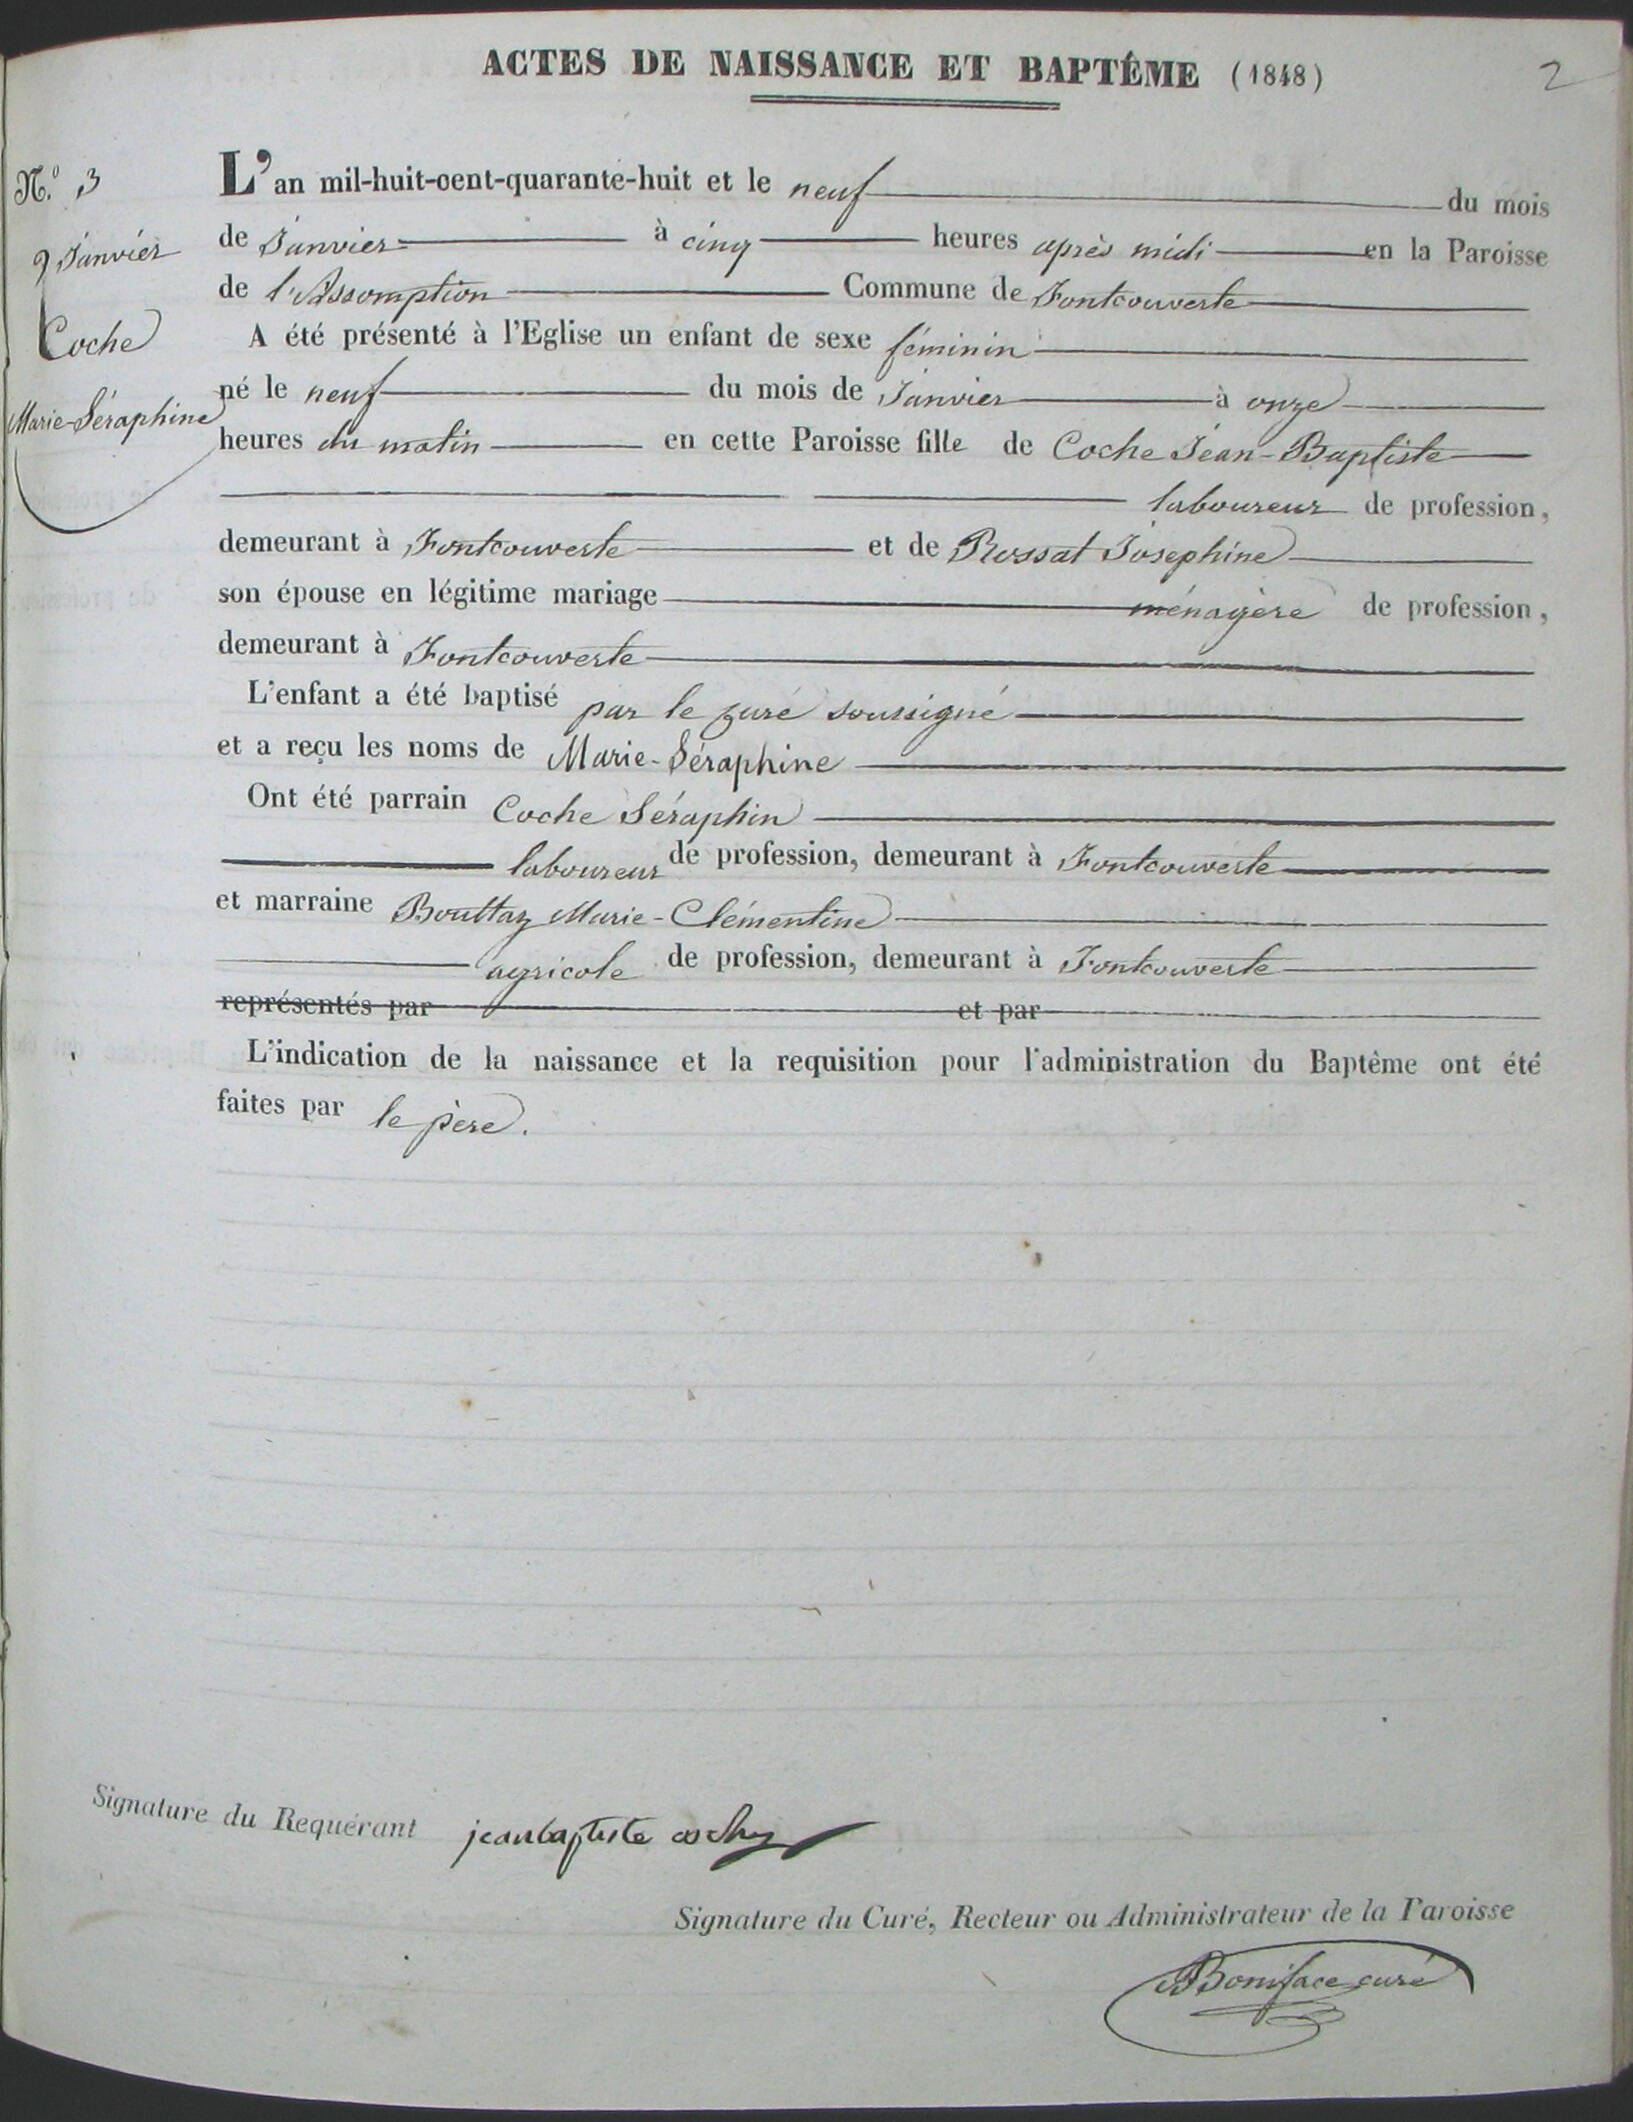 ACTES DE NAISSANCE ET BAPTÊME (1848)
2
N.º 3
9 Janvier
Coche
Marie-Séraphine
L'an mil-huit-cent-quarante-huit et le neuf du mois
de Janvier à cinq heures après midi en la Paroisse
de l'Assomption Commune de Fontcouverte
A été présenté à l'Eglise un enfant de sexe féminin
né le neuf du mois de Janvier à onze
heures du matin en cette Paroisse fille de Coche Jean-Baptiste
laboureur de profession,
demeurant à Fontcouverte et de Rossat Josephine
son épouse en légitime mariage ménagère de profession,
demeurant à Fontcouverte
L'enfant a été baptisé par le curé soussigné
et a reçu les noms de Marie-Séraphine
Ont été parrain Coche Séraphin
laboureur de profession, demeurant à Fontcouverte
et marraine Bouttaz Marie-Clémentine
agricole de profession, demeurant à Fontcouverte
représentés par et par
L'indication de la naissance et la requisition pour l'administration du Baptême ont été
faites par le père.
Signature du Requérant jeanbaptiste
Signature du Curé, Recteur ou Administrateur de la Paroisse
Boniface curé